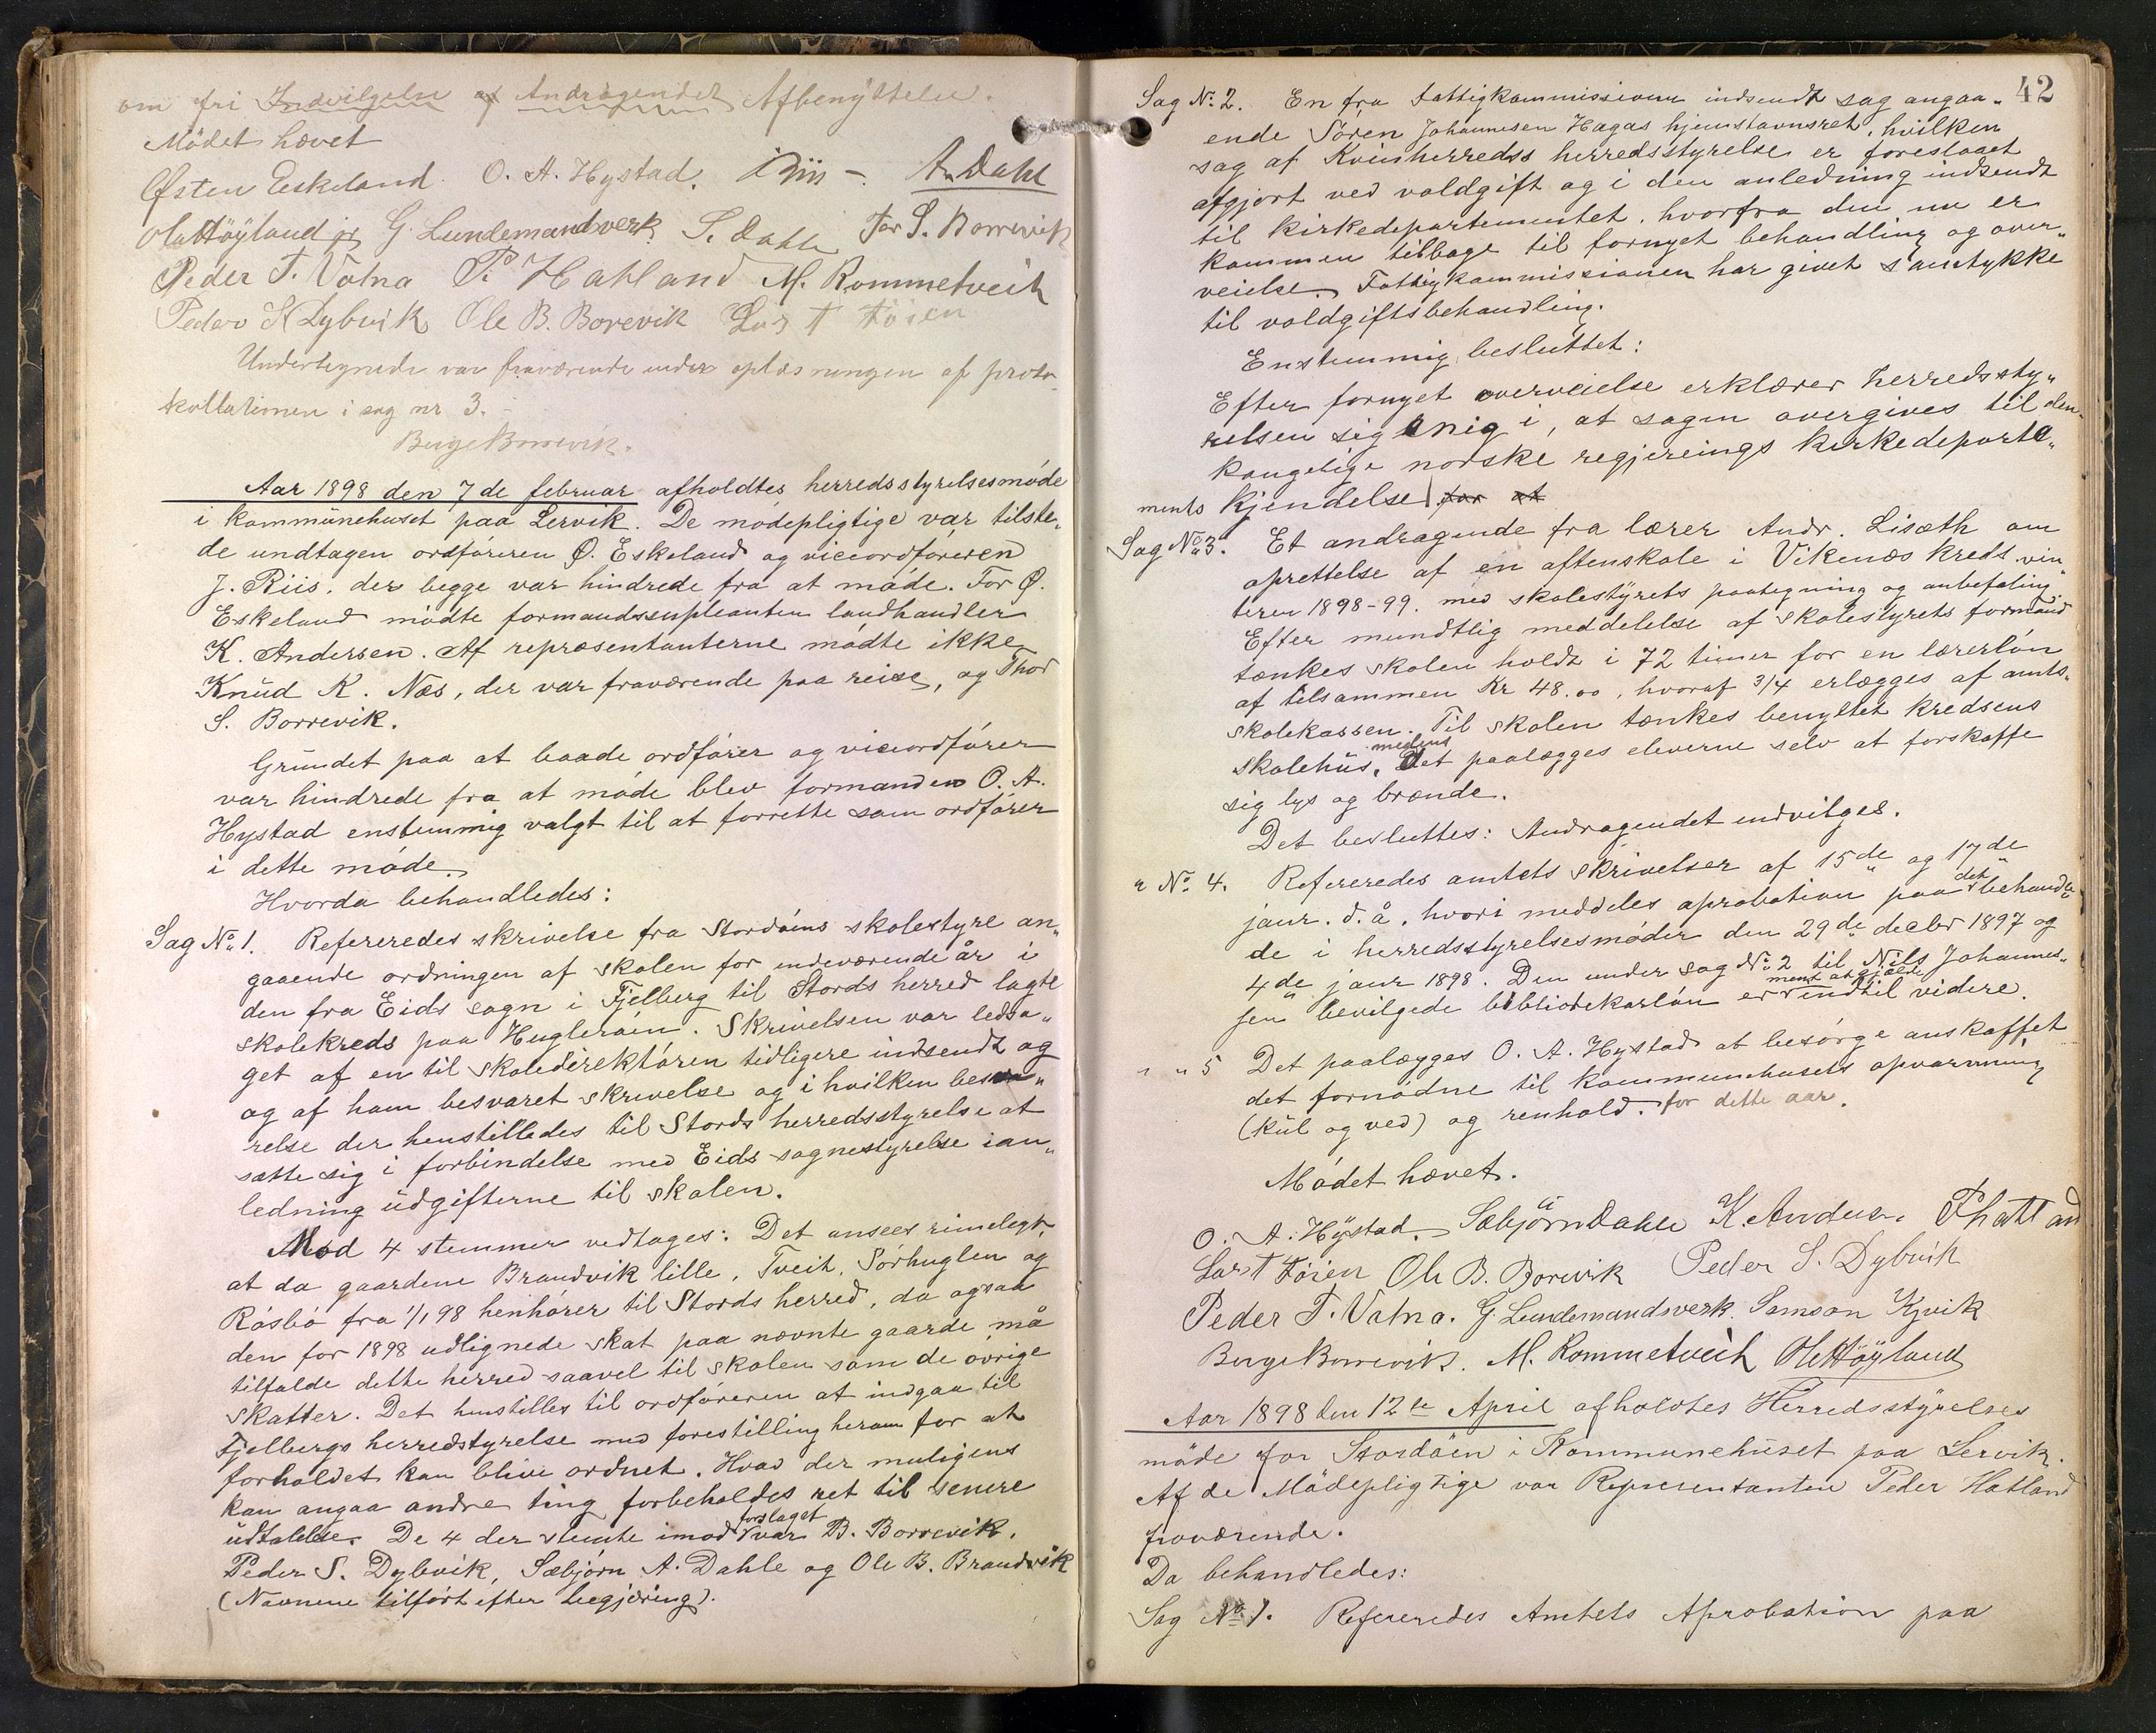 om fri Indvilgelse af Andragendet Afbenyttelse.
Mødet hævet
Østen Eskeland. O. A. Hystad. Riis –. A. Dahl
Ola Høyland jr G. Lundemandsverk. S. Dahle Tor S. Borrevik
Peder T. Vatna P. Hatland M. Rommetveit
Peder S Dybvik Ole B. Borevik Lars T Føien
Undertegnede var fraværende under oplæsningen af proto-
kollationen i sag nr 3.
Berge Borrevik.
Aar 1898 den 7de februar afholdtes herredsstyrelsesmøde
i kommunehuset paa Lervik. De mødepligtige var tilste„
de undtagen ordføreren Ø. Eskeland og viceordføreren
J. Riis, der begge var hindrede fra at møde. For Ø.
Eskeland mødte formandssupleanten landhandler
K. Andersen. Af repræsentanterne mødte ikke
Knud K. Næs, der var fraværende paa reise, og Thor
S. Borrevik.
Grundet paa at baade ordfører og viceordfører
var hindrede fra at møde blev formanden O. A.
Hystad enstemmig valgt til at forrette som ordfører
i dette møde.
Hvorda behandledes:
Sag No. 1. Refereredes skrivelse fra Stordøens skolestyre an„
gaaende ordningen af skolen for indeværende år i
den fra Eids sogn i Fjelberg til Stords herred lagte
skolekreds paa Huglerøen. Skrivelsen var ledsa„
get af en til skoledirektøren tidligere indsendt og
og af ham besvaret skrivelse og i hvilken besva„
relse der henstilledes til Stords herredsstyrelse at
sætte sig i forbindelse med Eids sognestyrelse i an„
ledning udgifterne til skolen.
Mod 4 stemmer vedtages: Det ansees rimeligt,
at da gaardene Brandvik lille, Tveit, Sørhuglen og
Røsbø fra 1/1 98 henhører til Stords herred, da ogsaa
den for 1898 udlignede skat paa nævnte gaarde må
tilfalde dette herred saavel til skolen som de øvrige
skatter. Det henstilles til ordføreren at indgaa til
Fjelbergs herredstyrelse med forestilling herom for at
forholdet kan blive ordnet. Hvad der muligens
kan angaa andre ting forbeholdes ret til senere
udtalelse. De 4 der stemte imod forslaget var B. Borrevik,
Peder S. Dybvik, Sæbjørn A. Dahle og Ole B. Brandvik
(Navnene tilført efter begjæring).
42
Sag No. 2. En fra Fattigkommissionen indsendt sag angaa„
ende Søren Johannesen Hagas hjemstavnsret, hvilken
sag af Kvinherreds herredsstyrelse er foreslaaet
afgjort ved voldgift og i den anledning indsendt
til kirkedepartementet, hvorfra den nu er
kommen tilbage til fornyet behandling og over„
veielse. Fattigkommissionen har givet samtykke
til voldgiftsbehandling.
Enstemmig besluttet:
Efter fornyet overveielse erklærer herredssty„
relsen sig enig i, at sagen overgives til den
kongelige norske regjereings kirkedeparte„
ments kjendelse for at
Sag No. 3. Et andragende fra lærer Andr. Lisæth om
oprettelse af en aftenskole i Vikenæs kreds vin„
teren 1898-99. med skolestyrets paategning og anbefaling
Efter mundtlig meddelelse af skolestyrets formand
tænkes skolen holdt i 72 timer for en lærerløn
af tilsammen Kr 48.00, hvoraf 3/4 erlægges af amts„
skolekassen. Til skolen tænkes benyttet kredsens
skolehus, medens det paalægges eleverne selv at forskaffe
sig lys og brænde.
Det besluttes: Andragendet indvilges.
" No. 4. Refereredes amtets skrivelser af 15de og 17de
janr. d. å. hvori meddeles aprobation paa det behandle„
de i herredsstyrelsesmøder den 29de decbr 1897 og
4de janr 1898. Den under sag No. 2 til Nils Johannes„
sen bevilgede bibliotekarløn er ment at gjælde indtil videre.
" " 5 Det paalægges O. A. Hystad at besørge anskaffet
det fornødne til kommunehusets opvarmning
(kul og ved) og renhold. for dette aar.
Mødet hævet.
O. A. Hystad. Sæbjørn A Dahle K. Andersen P Hatland
Lars T Føien Ole B. Borevik Peder S. Dybvik
Peder T. Vatna. G. Lundemandsverk. Samson Kjvik
Berge Borrevik. M. Rommetveit Ole Høyland
Aar 1898 den 12te April afholdtes Herredsstyrelses
møde for Stordøen i Kommunehuset paa Lervik.
Af de Mødepligtige var Representanten Peder Hatland
fraværende.
Da behandledes:
Sag No. 1. Refereredes Amtets Aprobation paa